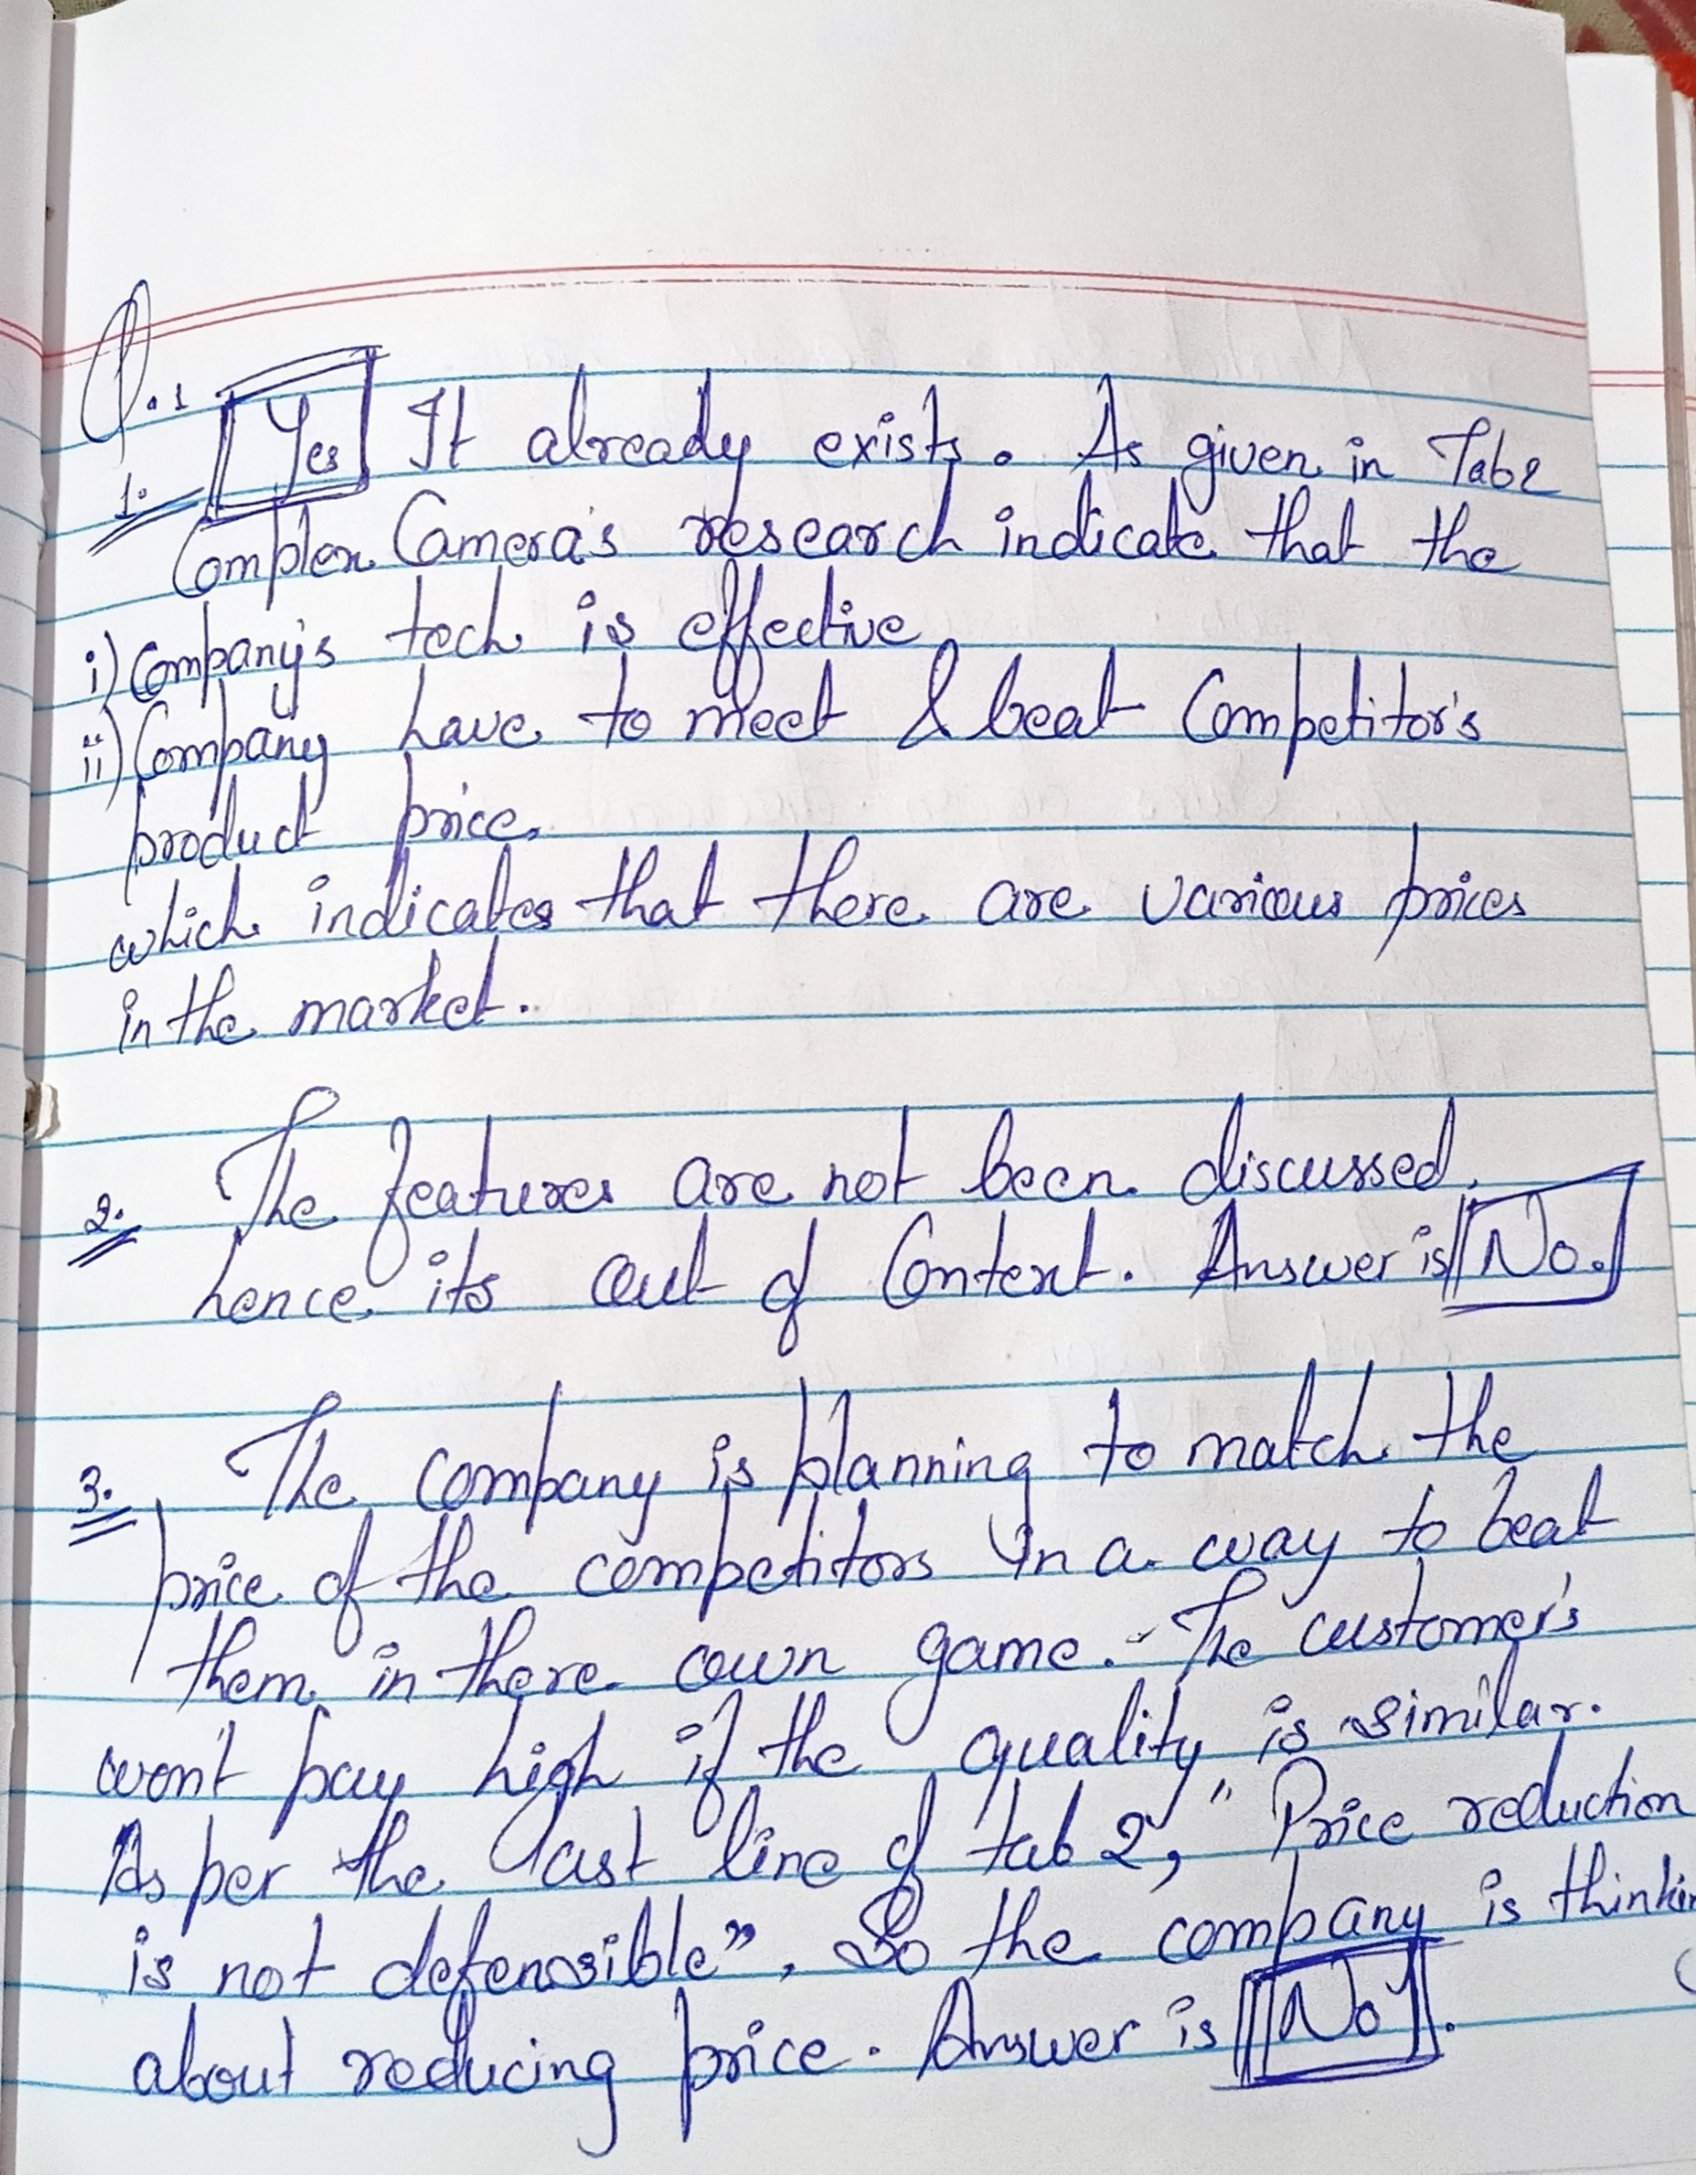 Q.1
1. Yes It already exists. As given in Tab2
Complex Camera's research indicate that the
i) Company's tech is effective
ii) Company have to meet & beat Competitor's
product price.
which indicates that there are various prices
in the market.
2. The features are not been discussed.
hence its out of Context. Answer is No.
3. The company is planning to match the
price of the competitors in a way to beat
them in there own game. The customer's
won't pay high if the quality is similar.
As per the last line of tab 2, "Price reduction
is not defensible", So the company is thinkin
about reducing price. Answer is No.